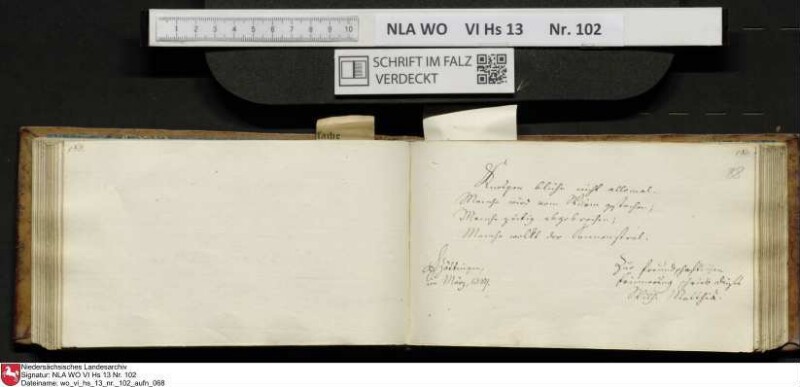 1 2 3 4 5 6 7 8 9 10
NLA WO VI Hs 13 Nr. 102
SCHRIFT IM FALZ
VERDECKT
88
Knospen blühn nicht allemal.
Manche wird vom Wurm gestochen;
Manche zeitig abgebrochen;
Manche welkt der Sonnenstral.
Göttingen,
im März
Zur freundschaftlichen
Erinnerung schrieb dieses
Niedersächsisches Landesarchiv
Signatur: NLA WO VI Hs 13 Nr. 102
Dateiname: wo_vi_hs_13_nr._102_aufn_068